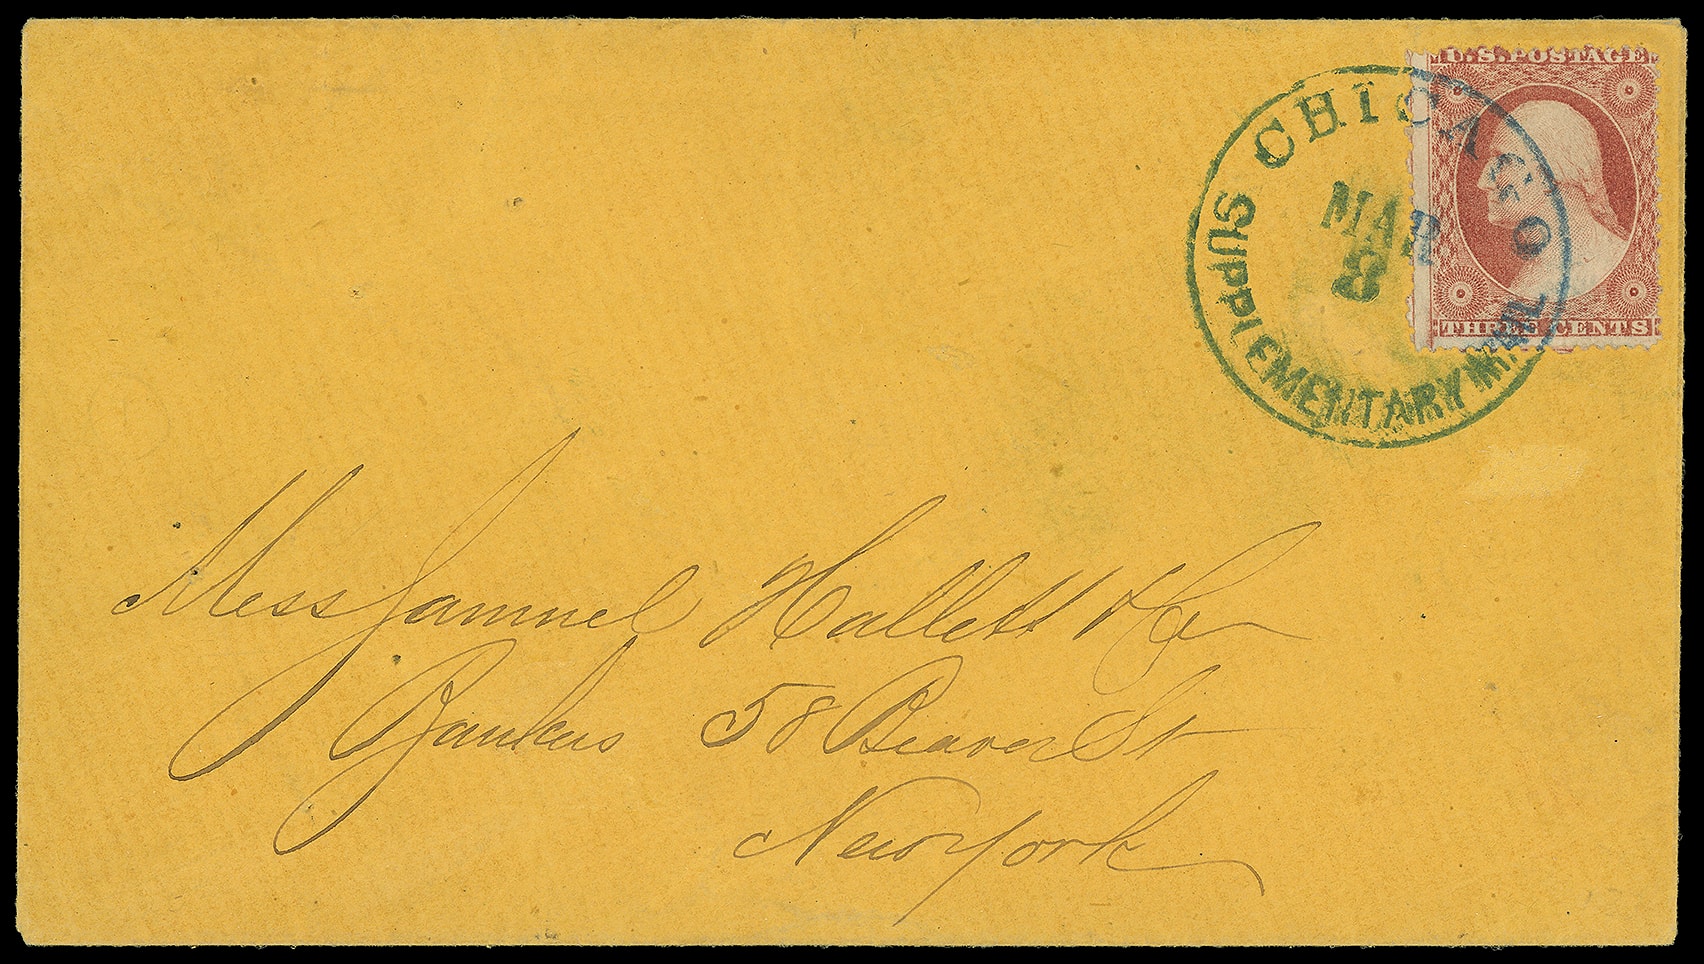 U.S. POSTAGE
CHICAGO
MAR
8
SUPPLEMENTARY MAIL
THREE CENTS
Mess Samuel Hallett & Co
Bankers 58 Beaver St
New York